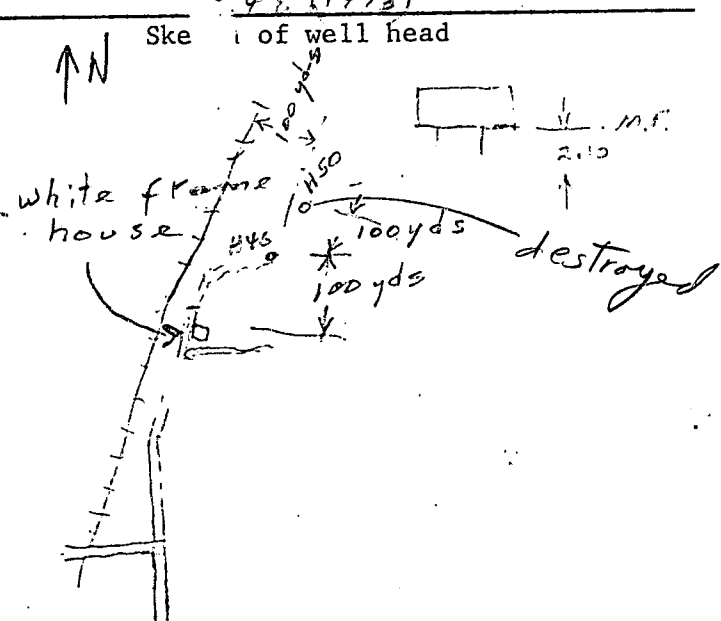 Ske of well head
N
100 yds
M.P.
white frame
house
H50
H45
100 yds
100 yds
destroyed